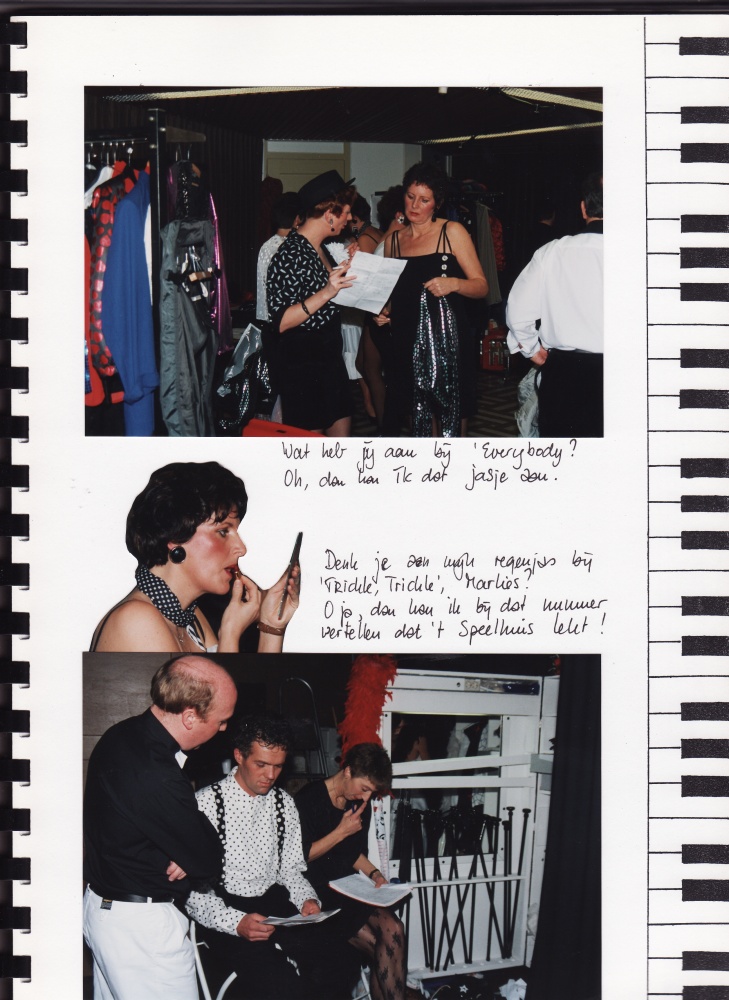 Wat heb jij aan bij 'Everybody?
Oh, dan kan Ik dat jasje aan.
Denk je aan mijn regenjas bij
'Trickle, Trickle', Marlies?
O ja, dan kan ik bij dat nummer
vertellen dat 't Speelhuis lekt!